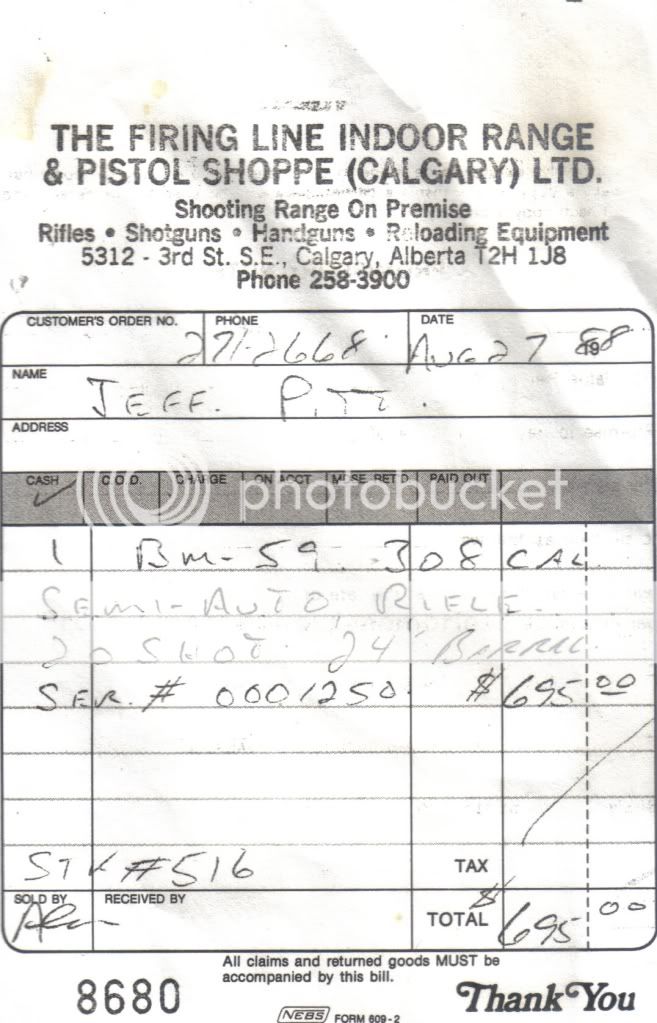 THE FIRING LINE INDOOR RANGE
& PISTOL SHOPPE (CALGARY) LTD.
Shooting Range On Premise
Rifles • Shotguns • Handguns • Reloading Equipment
5312 - 3rd St. S.E., Calgary, Alberta T2H 1J8
Phone 258-3900
CUSTOMER'S ORDER NO. PHONE DATE
271-2668 AUG 27 1988
NAME
JEFF. PITT.
ADDRESS
CASH ✓ C.O.D. CHARGE ON ACCT. MDSE RET'D PAID OUT
photobucket
1 BM-59 .308 CAL.
SEMI-AUTO, RIFLE.
20 SHOT. 24" BARREL
SER. # 0001250 $695.00
STK #516 TAX
SOLD BY RECEIVED BY
TOTAL $695.00
All claims and returned goods MUST be
accompanied by this bill.
8680
Thank You
NEBS FORM 609-2